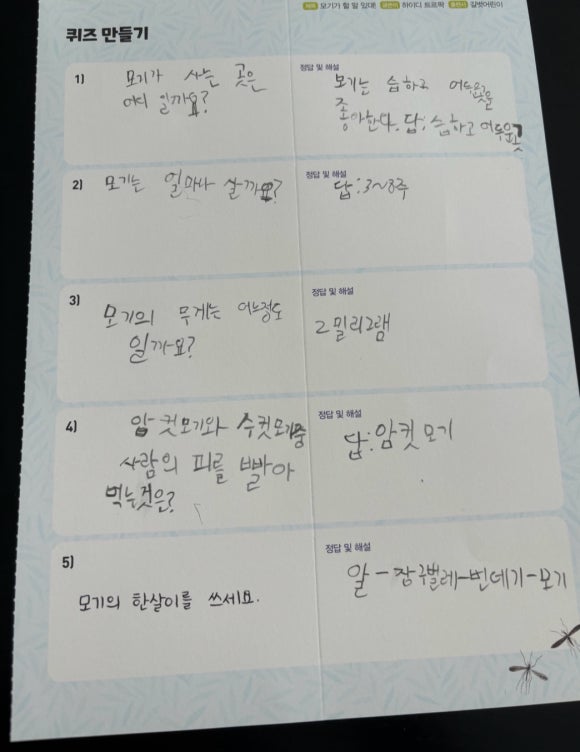 제목 모기가 할 말 있대! 글쓴이 하이디 트르팍 출판사 길벗어린이
퀴즈 만들기
1)
모기가 사는 곳은
어디 일까요?
정답 및 해설
모기는 습하고 어두운곳을
좋아한다. 답: 습하고 어두운곳
2)
모기는 얼마나 살까요?
정답 및 해설
답: 3~8주
3)
모기의 무게는 어느정도
일까요?
정답 및 해설
2밀리그램
4)
암컷모기와 수컷모기중
사람의 피를 빨아
먹는것은?
정답 및 해설
답: 암컷 모기
5)
모기의 한살이를 쓰세요.
정답 및 해설
알-장구벌레-번데기-모기